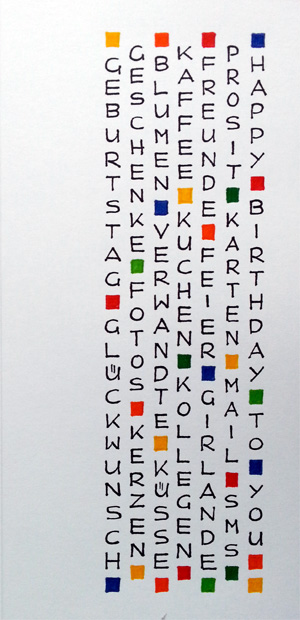 GEBURTSTAG GLÜCKWUNSCH
GESCHENKE FOTOS KERZEN
BLUMEN VERWANDTE KÜSSE
KAFFEE KUCHEN KOLLEGEN
FREUNDE FEIER GIRLANDE
PROSIT KARTEN MAIL SMS
HAPPY BIRTHDAY TO YOU